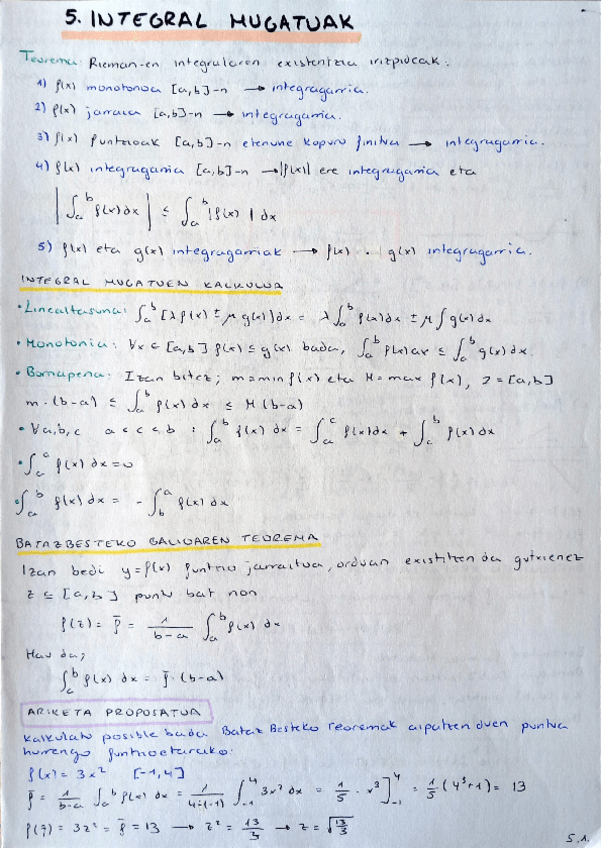 5. INTEGRAL MUGATUAK
Teorema: Rieman-en integralaren existentzia irizpideak:
1) f(x) monotonoa [a,b]-n → integragarria.
2) f(x) jarraia [a,b]-n → integragarria.
3) f(x) funtzioak [a,b]-n etenune kopuru finitua → integragarria.
4) f(x) integragarria [a,b]-n → |f(x)| ere integragarria eta
|∫_a^b f(x)dx| ≤ ∫_a^b |f(x)| dx
5) f(x) eta g(x) integragarriak → f(x) . g(x) integragarria.
INTEGRAL MUGATUEN KALKULUA
• Linealtasuna: ∫_a^b [λf(x) ± μg(x)]dx = λ∫_a^b f(x)dx ± μ∫g(x)dx
• Monotonia: ∀x ∈ [a,b] f(x) ≤ g(x) bada, ∫_a^b f(x)dx ≤ ∫_a^b g(x)dx.
• Bornapena: Izan bitez; m=min f(x) eta M=max f(x), z=[a,b]
m·(b-a) ≤ ∫_a^b f(x)dx ≤ M(b-a)
• ∀a,b,c a<c<b : ∫_a^b f(x)dx = ∫_a^c f(x)dx + ∫_c^b f(x)dx
• ∫_a^a f(x)dx=0
• ∫_a^b f(x)dx = - ∫_b^a f(x)dx
BATAZBESTEKO BALIOAREN TEOREMA
Izan bedi y=f(x) funtzio jarraitua, orduan existitzen da gutxienez
z ∈ [a,b] puntu bat non
f(z) = f̄ = 1/(b-a) ∫_a^b f(x)dx
Hau da;
∫_a^b f(x)dx = f̄·(b-a)
ARIKETA PROPOSATUA
Kalkulatu posible bada Bataz Besteko teoremak aipatzen duen puntua
hurrengo funtzioetarako:
f(x) = 3x² [-1,4]
f̄ = 1/(b-a) ∫_a^b f(x)dx = 1/(4-(-1)) ∫_{-1}^4 3x²dx = 1/5 · x³]_{-1}^4 = 1/5(4³+1) = 13
f(z) = 3z² = f̄ = 13 → z² = 13/3 → z = √(13/3)
5.1.